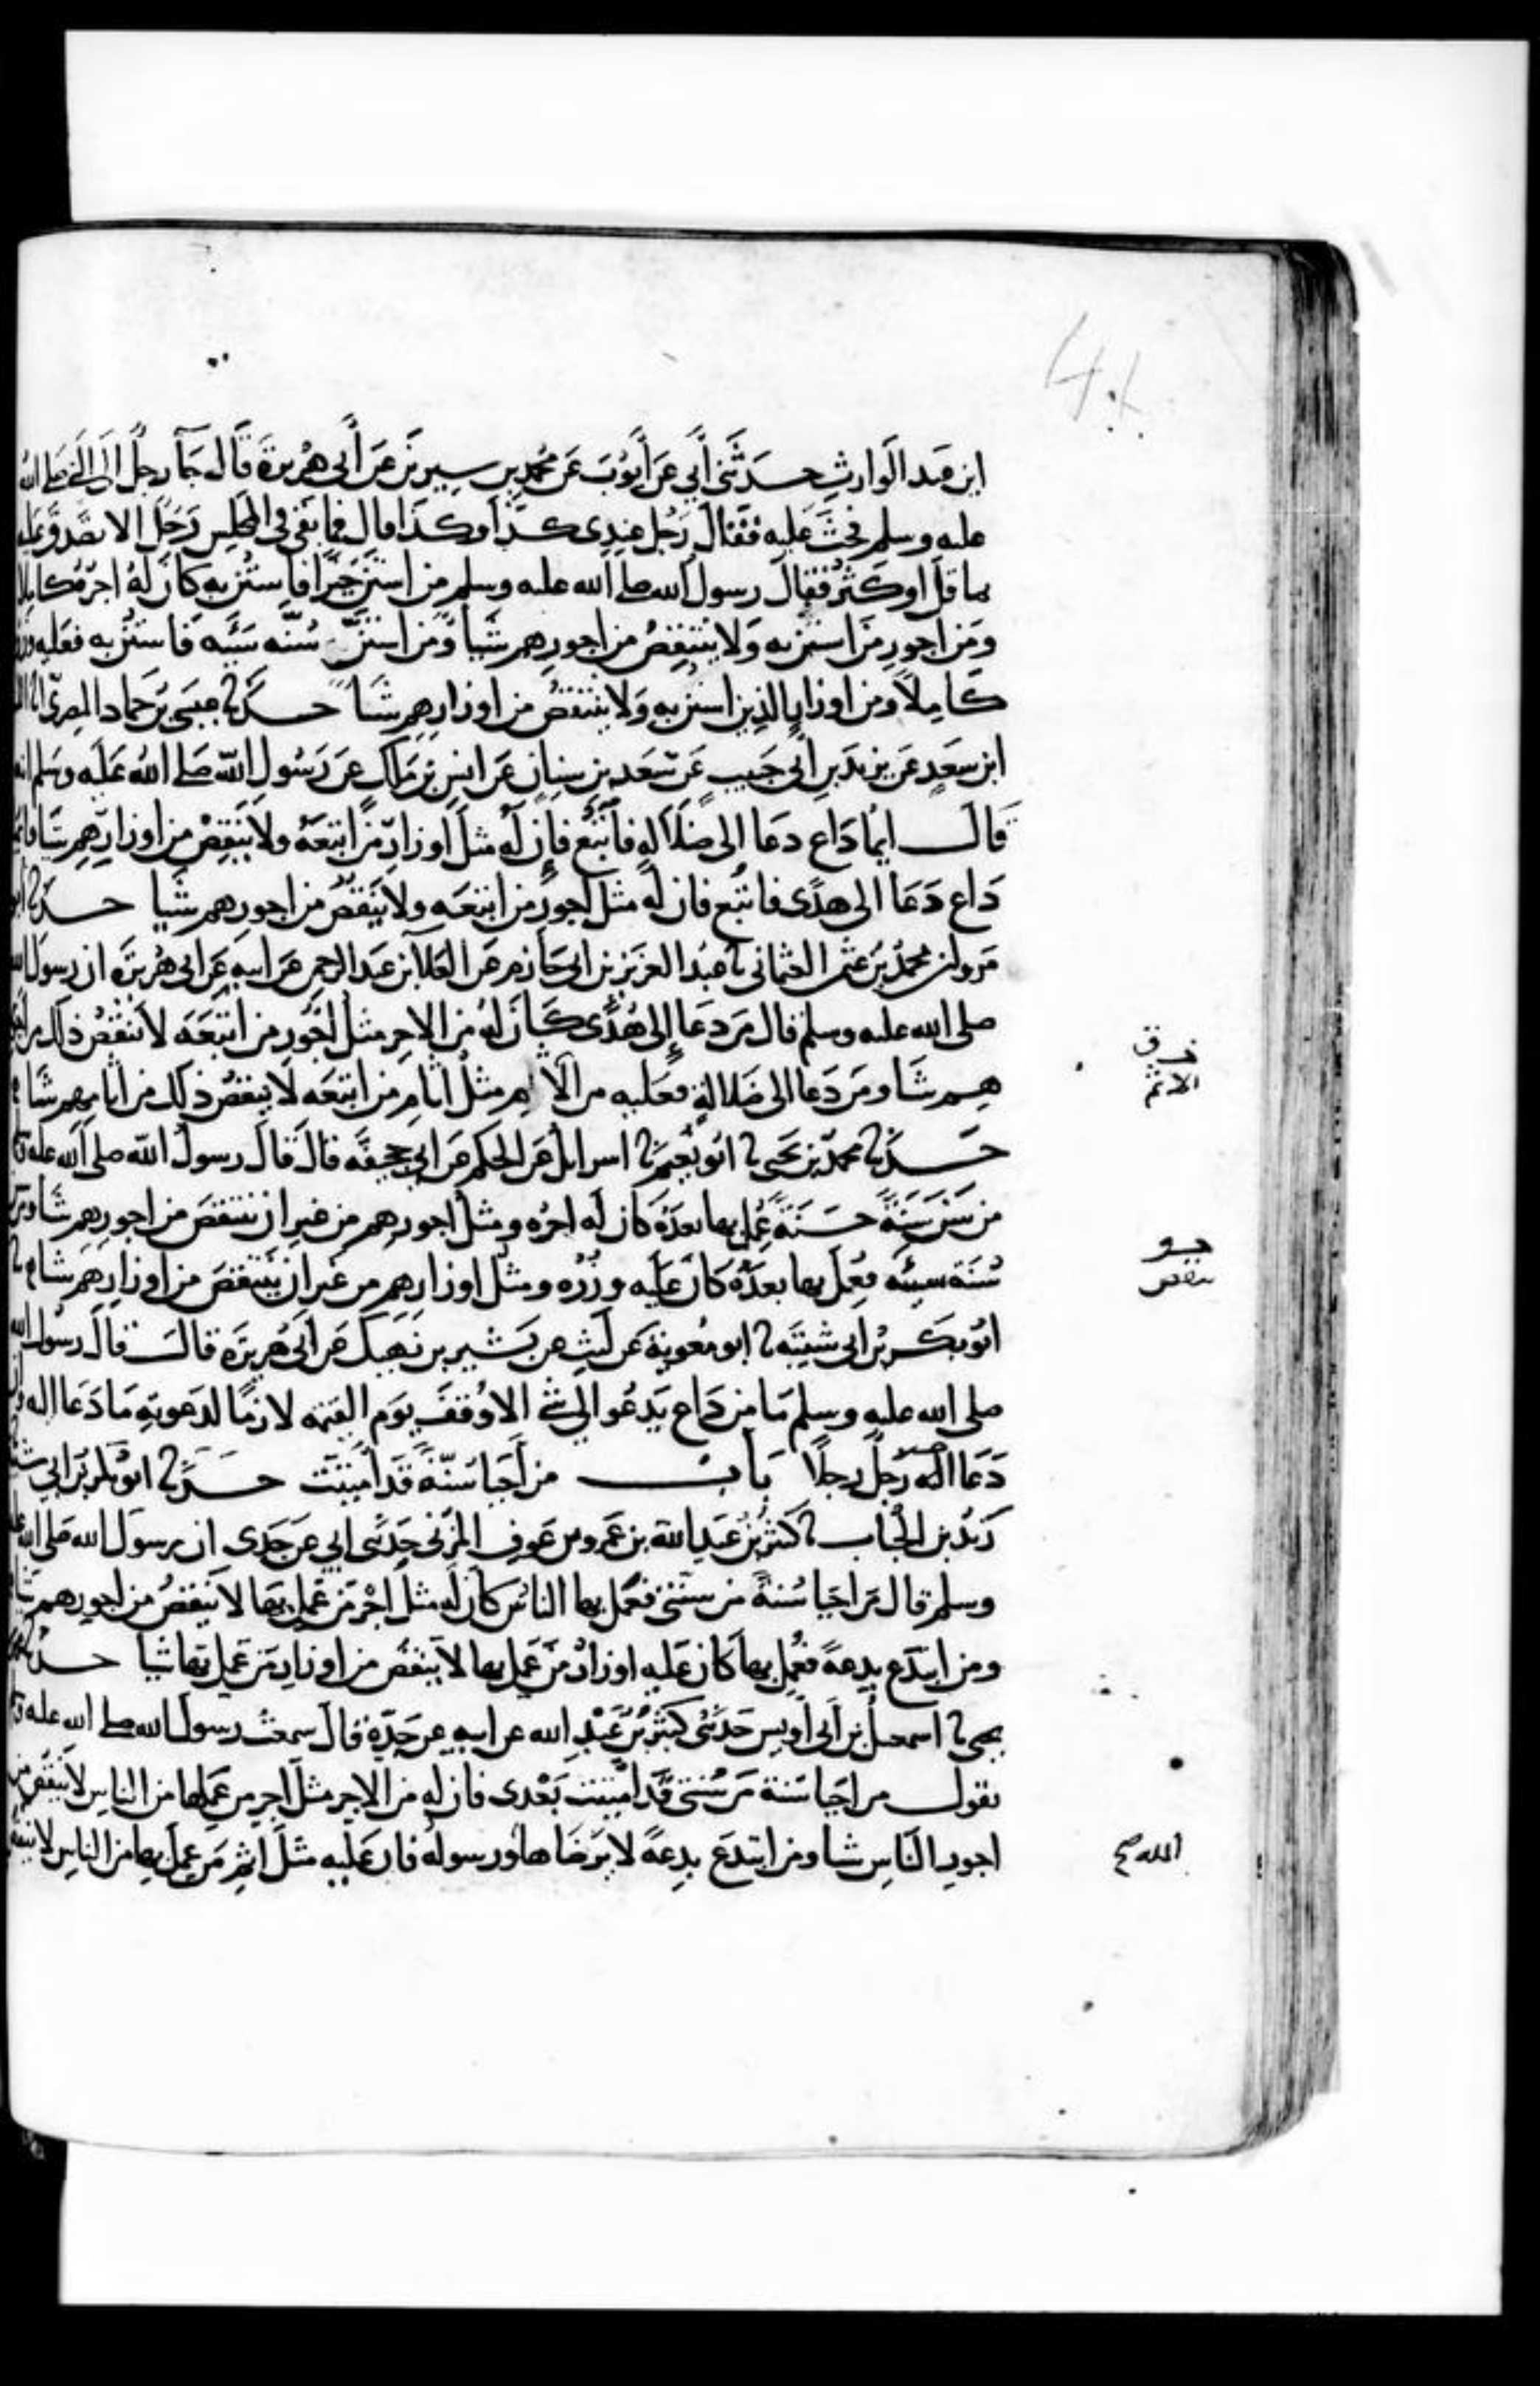 ابن عبد الوارث حدثني أبي عن أيوب عن محمد بن سيرين عن أبي هريرة قال جآ رجل الى النبي صلى الله
عليه وسلم فحث عليه فقال رجل عندي كذا وكذا قال فما بقي في المجلس رجل الا تصدق عليه
بما قل او كثر فقال رسول الله صلى الله عليه وسلم من استن خيرا فاستن به كان له اجره كاملا
ومن اجور من استن به ولا ينتقص من اجورهم شيا ومن استن سنه سيئه فاستن به فعليه وزره
كاملا ومن اوزار الذين استن به ولا ينتقص من اوزارهم شيا حدثنا عيسى بن حماد المصري انا الليث
ابن سعد عن يزيد بن أبي حبيب عن سعد بن سنان عن انس بن مالك عن رسول الله صلى الله عليه وسلم انه
قال ايما داع دعا إلى ضلالة فاتبع فإن له مثل اوزار من اتبعه ولا ينقص من اوزارهم شيا وايما
داع دعا الى هدى فاتبع فان له مثل اجور من اتبعه ولا ينقص من اجورهم شيا حدثنا ابو
مروان محمد بن عثمن العثماني نا عبد العزيز بن ابي حازم عن العلآ بن عبد الرحمن عن ابيه عن ابي هريرة ان رسول الله
صلى الله عليه وسلم قال من دعا إلى هدى كان له من الاجر مثل اجور من اتبعه لا ينقص ذلك من اجور
هم شيا ومن دعا الى ضلالة فعليه من الاثم مثل اثام من اتبعه لا ينقص ذلك من اثامهم شيا
حدثنا محمد بن يحيى نا ابو نعيم نا اسرايل عن الحكم عن ابي جحيفة قال قال رسول الله صلى الله عليه
من سن سنة حسنة عمل بها بعده كان له اجره ومثل اجورهم من غير ان ينتقص من اجورهم شيا ومن
سنة سيئه فعمل بها بعده كان عليه وزره ومثل اوزارهم من غير ان ينتقص من اوزارهم شيا
ابو بكر بن ابي شيبة نا ابو معوية عن ليث عن بشير بن نهيك عن ابي هريرة قال قال رسول الله
صلى الله عليه وسلم ما من داع يدعو الى شئ الا وقف يوم القيمه لازما لدعوته ما دعا اليه وان
دعا اليه رجل رجلا باب من أحيا سنة قد اميتت حدثنا ابو بكر بن ابي شيبة
زيد بن الحباب نا كثير بن عبد الله بن عمرو بن عوف المزني حدثني ابي عن جدي ان رسول الله صلى الله عليه
وسلم قال من احيا سنة من سنتي فعمل بها الناس كان له مثل اجر من عمل بها لا ينقص من اجورهم شيا
ومن ابتدع بدعة فعمل بها كان عليه اوزار من عمل بها لا ينقص من اوزار من عمل بها شيا حدثنا محمد
يحيى نا اسمعيل بن ابي أويس حدثني كثير بن عبد الله عن ابيه عن جده قال سمعت رسول الله صلى الله عليه
يقول من احيا سنة من سنتي قد اميتت بعدي فان له من الاجر مثل اجر من عملها من الناس لا ينقص من
اجور الناس شيا ومن ابتدع بدعة لا يرضاها ورسوله فان عليه مثل اثم من عمل بها من الناس لا ينقص
الاثم
ينقص
الله صح